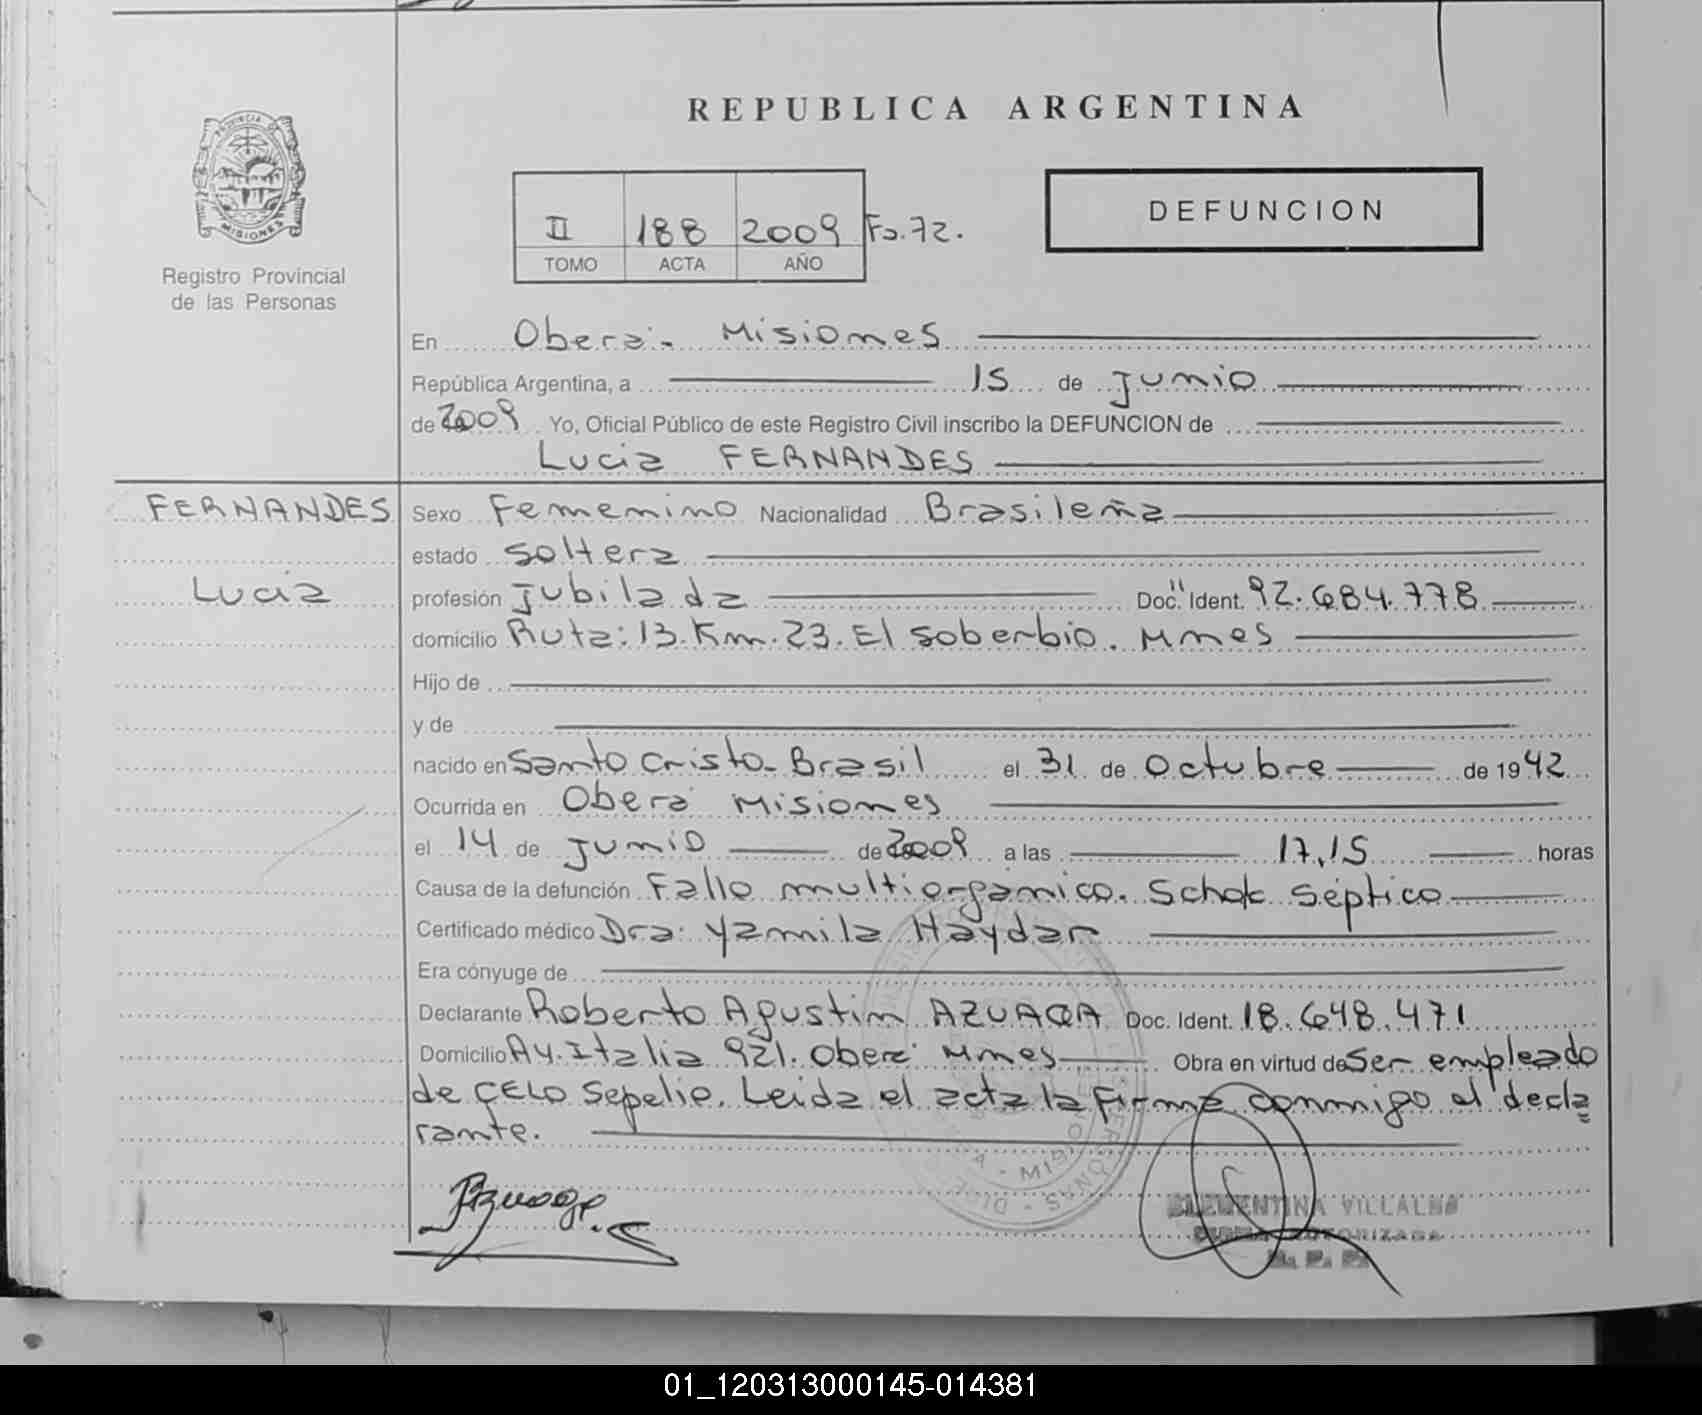 REPUBLICA ARGENTINA
PROVINCIA DE
MISIONES
Registro Provincial
de las Personas
DEFUNCION
II 188 2009 Fo.72.
TOMO ACTA AÑO
En Oberá. Misiones
República Argentina, a 15 de Junio
de 2009 Yo, Oficial Público de este Registro Civil inscribo la DEFUNCION de
Lucia FERNANDES
FERNANDES
Lucia
Sexo Femenino Nacionalidad Brasileña
estado soltera
profesión Jubilada Doc. Ident. 92.684.778
domicilio Ruta:13.Km.23.El soberbio. Mnes
Hijo de
y de
nacido en Santo Cristo-Brasil el 31 de Octubre de 1942
Ocurrida en Oberá Misiones
el 14 de Junio de 2009 a las 17,15 horas
Causa de la defunción Fallo multiorgánico. Schok séptico
Certificado médico Dra: Yamila Haydar
Era cónyuge de
Declarante Roberto Agustin AZUAGA Doc. Ident. 18.648.471
Domicilio Av. Italia 921. Oberá Mnes Obra en virtud de Ser empleado
de CELO Sepelio. Leida el acta la firma conmigo el decla
rante.
CLEMENTINA VILLALBA
FIRMA AUTORIZADA
01_120313000145-014381